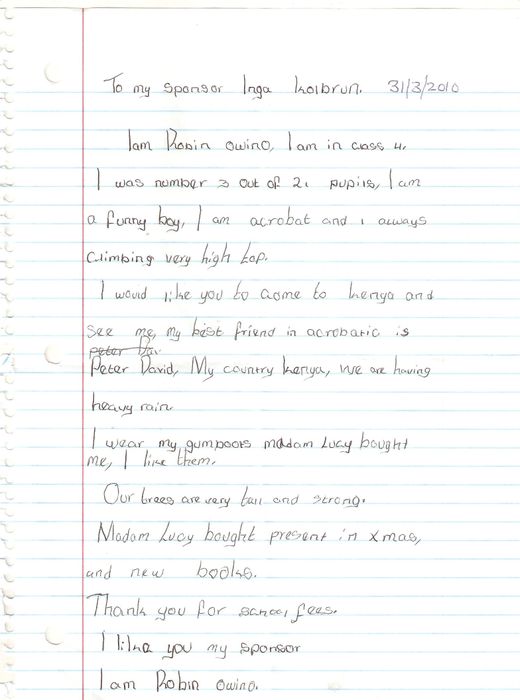 To my sponsor Inga Kolbrun. 31/3/2010
I am Robin Owino, I am in class 4.
I was number 3 out of 21 pupils, I am
a funny boy, I am acrobat and I always
climbing very high top.
I would like you to come to kenya and
see me, my best friend in acrobatic is
peter Dav
Peter David, My country kenya, we are having
heavy rain
I wear my gumboots madam Lucy bought
me, I like them.
Our trees are very tall and strong.
Madam Lucy bought present in xmas,
and new books.
Thank you for school fees.
I like you my sponsor
I am Robin Owino.